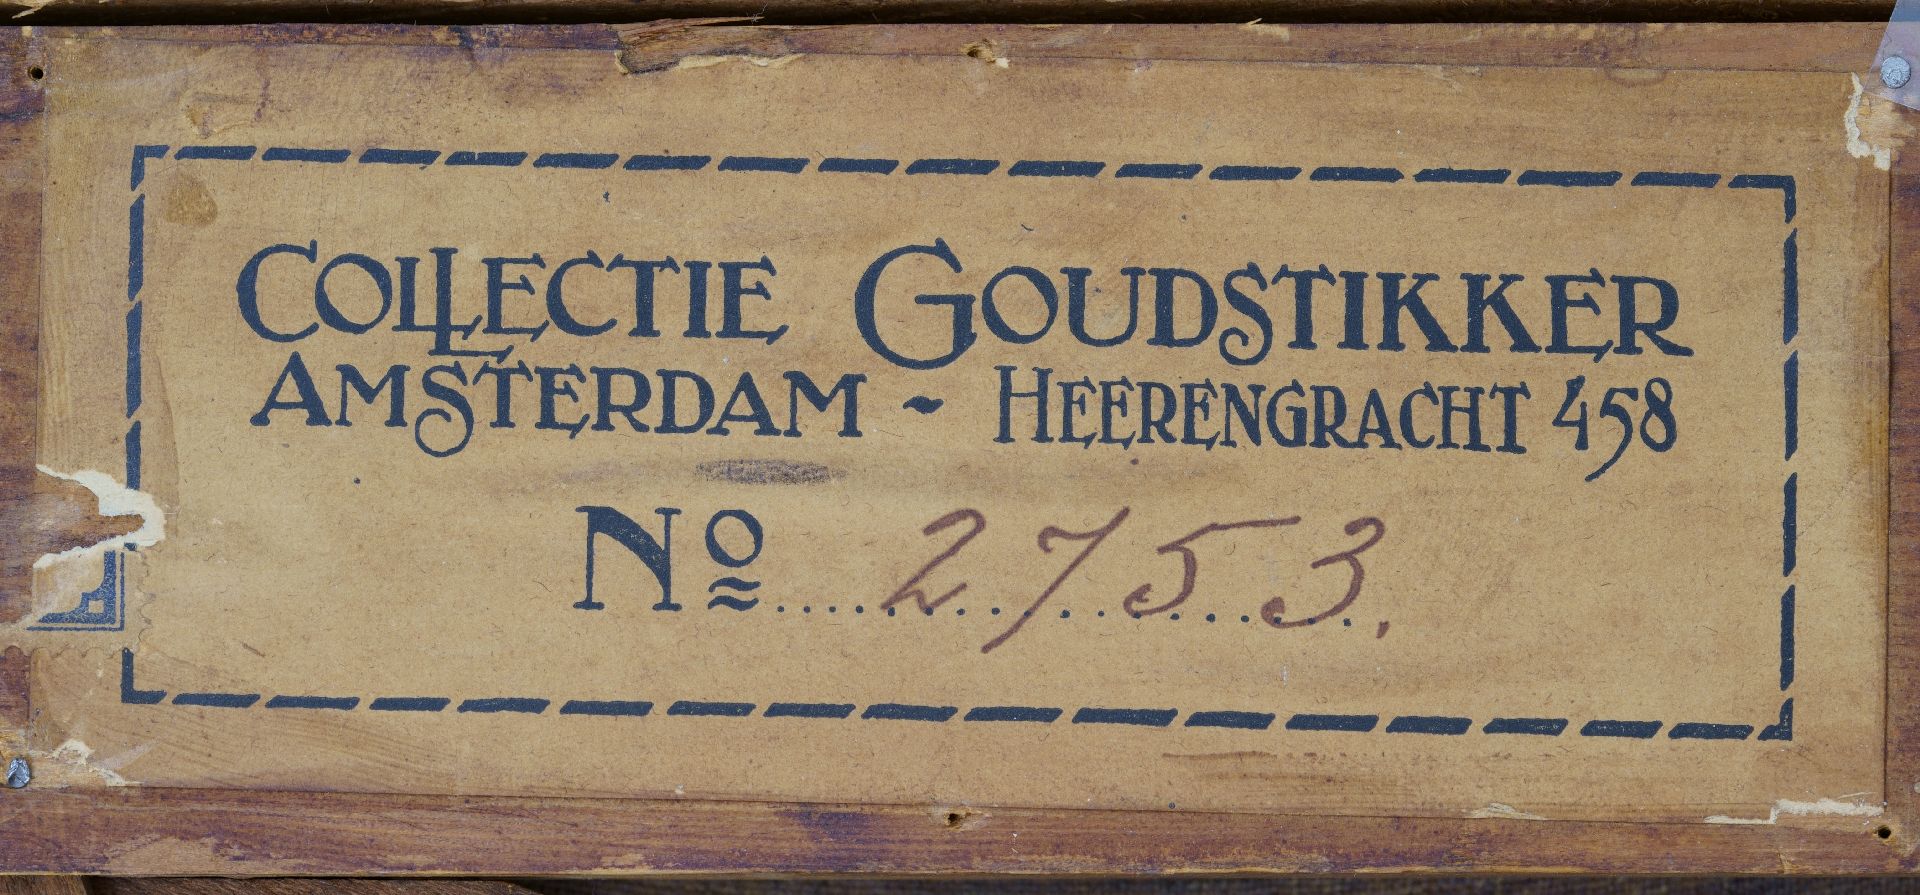 COLLECTIE GOUDSTIKKER
AMSTERDAM - HEERENGRACHT 458
Nº 2753.